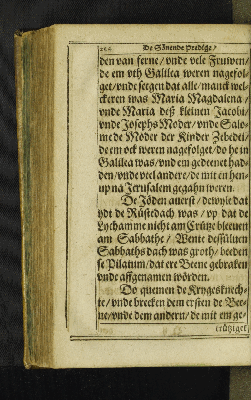 De Sönende Predige/
den van ferne/ vnde vele Fruwen/
de em vth Galilea weren nagefol-
get/ vnde seegen dat alle/ manck wel-
ckeren was Maria Magdalena/
vnde Maria deß kleinen Jacobi/
vnde Josephs Moder/ vnde Salo-
me de Möder der Kinder Zebedei/
de em ock weren nagefolget/ do he in
Galilea was/ vnd em gedeenet had-
den/ vnde veel andere/ de mit en hen-
up na Jerusalem gegahn weren.
De Jöden auerst/ dewyle dat
ydt de Rüstedach was/ vp dat de
Lychamme nicht am Crütze bleuen
am Sabbathe/ Wente dessüluen
Sabbaths dach was groth/ beeden
se Pilatum/ dat ere Beene gebraken
vnde affgenamen wörden.
Do quemen de Krygesknech-
te/ vnde brecken dem ersten de Bee-
ne/ vnde dem andern/ de mit em ge-
crützigef